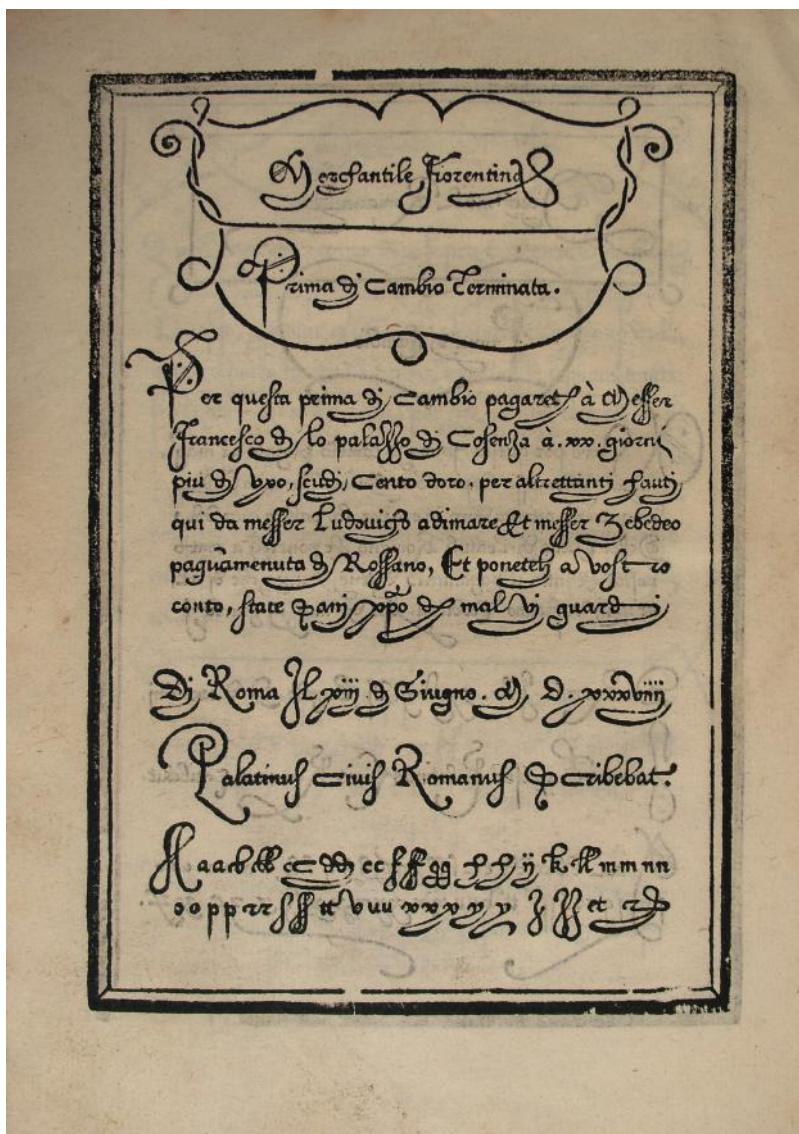 Merchantile Fiorentina
Prima di Cambio Terminata.
Per questa prima di Cambio pagarete à Messer
Francesco de lo palazzo di Cosenza à .xx. giorni
piu de vxo, scudi, Cento doro. per altrettanti hauti
qui da messer Ludovico adimare Et messer Zebedeo
paguamenuta de Rossano, Et ponetele a vostro
conto, state xpo de mal vi guardi
Di Roma Il xiii de Giugno. M. D. xxxviiii
Palatinus Civis Romanus Scribebat.
A a a b bb c c d d e e f ff g g h h ij k kk m m n n
o o p p r r s ss tt v u u x x x y y z zz et